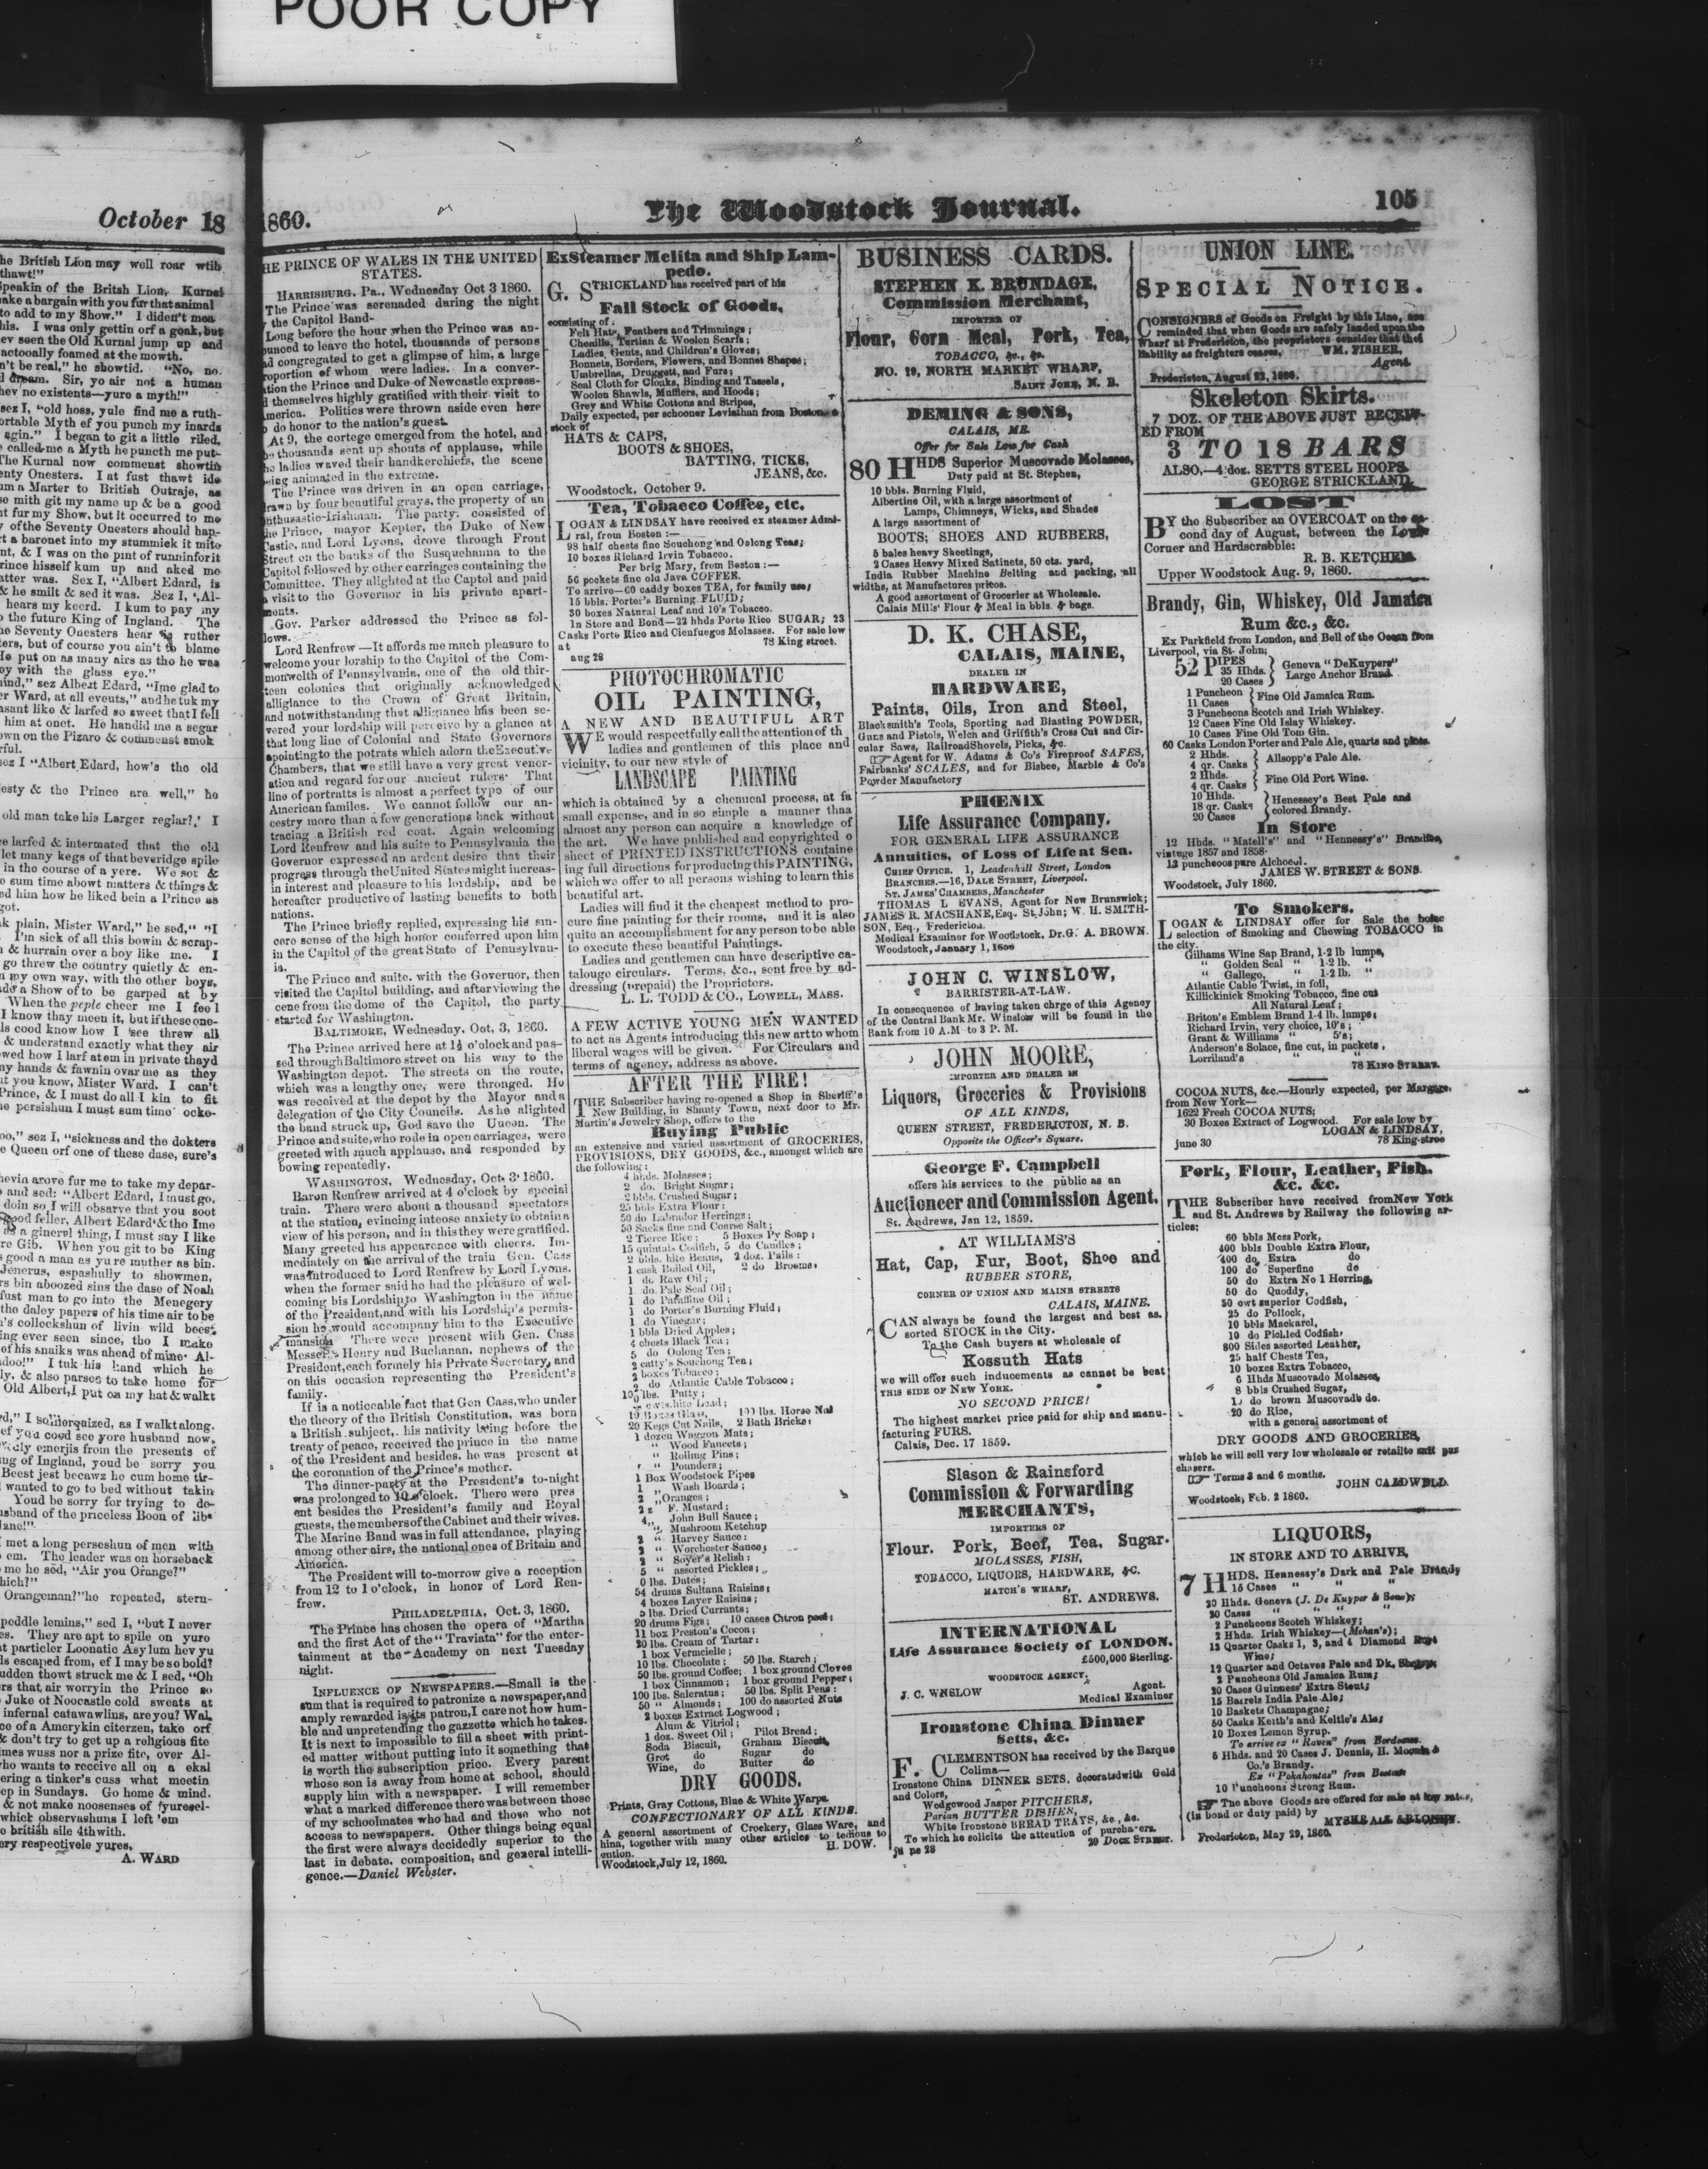 POOR COPY
October 18
he British Lion may well roar wtih
thawt!"
Speakin of the Britsh Lion, Kurnel
ake a bargain with you fur that animal
to add to my Show." I diden't mea
his. I was only gettin orf a goak, but
ev seen the Old Kurnal jump up and
actooally foamed at the mowth.
n't be real," he showtid. "No, no.
dream. Sir, yo air not a human
hev no existents—yure a myth!"
sez I, "old hoss, yule find me a ruth-
ortable Myth ef you punch my inards
agin." I began to git a little riled,
called me a Myth he puncth me put-
The Kurnal now commenst showtin
enty Onesters. I at fust thawt ide
um a Marter to British Outraje, as
se mith git my name up & be a good
nt fur my Show, but it occurred to me
of the Seventy Onesters should hap-
t a baronet into my stummick it mite
nt, & I was on the pint of runninforit
rince hisself kum up and aked mo
atter was. Sex I, "Albert Edard, is
& he smilt & sed it was. Sez I, "Al-
hears my keerd. I kum to pay my
o the future King of Ingland. The
he Seventy Onesters hear ruther
ters, but of course you ain't to blame
He put on as many airs as tho he was
oy with the glass eye."
mind," sez Albert Edard, "Ime glad to
er Ward, at all events," and he tuk my
asant like & larfed so sweet that I fell
him at onct. He handid me a segar
own on the Pizaro & commenst smok
rful.
sez I "Albert Edard, how's the old
esty & the Prince are well," he
old man take his Larger reglar?" I
e larfed & intermated that the old
let many kegs of that beveridge spile
in the course of a yere. We sot &
sum time abowt matters & things &
ed him how he liked bein a Prince as
got.
k plain, Mister Ward," he sed, "I
I'm sick of all this bowin & scrap-
& hurrain over a boy like me. I
go threw the country quietly & en-
my own way, with the other boys,
ade a Show of to be garped at by
When the peple cheer me I feel
I know thay meen it, but if these one-
ls cood know how I see threw all
& understand exactly what they air
wed how I larf at em in private thayd
ny hands & fawnin ovar me as they
ut you know, Mister Ward. I can't
Prince, & I must do all I kin to fit
he persishun I must sum time ocke-
oo," sez I, "sickness and the dokters
e Queen orf one of these dase, sure's
hevin arove fur me to take my depar-
and sed: "Albert Edard, I must go,
doin so I will obsarve that you soot
good feller, Albert Edard & tho Ime
as a ginerel thing, I must say I like
re Gib. When you git to be King
s good a man as yure muther as bin.
Jenerus, espashully to showmen,
rs bin aboozed sins the dase of Noah
fust man to go into the Menegery
the daley papers of his time air to be
's colleckshun of livin wild beest
ing ever seen since, tho I make
of his snaiks was ahead of mine. Al-
doo!" I tuk his hand which he
ly, & also parses to take home for
Old Albert, I put on my hat & walkt
d," I solderqized, as I walkt along.
ef you cowd see yore husband now,
dly emerjis from the presents of
ng of Ingland, youd be sorry you
Beest jest becawz he cum home tir-
wanted to go to bed without takin
Youd be sorry for trying to de-
usband of the priceless Boon of libe
Jane!"
met a long perseshun of men with
em. The leader was on horseback
me he sed, "Air you Orange?"
hich?"
Orangeman?" he repeated, stern-
peddle lemins," sed I, "but I never
es. They are apt to spile on yure
at particler Loonatic Asylum hev yu
ls escaped from, ef I may be so bold?
udden thowt struck me & I sed, "Oh
rs that air worryin the Prince so
Juke of Noocastle cold sweats at
infernal catawawlins, are you? Wal,
ce of a Amerykin citerzen, take orf
& don't try to get up a religious fite
imes wuss nor a prize fite, over Al-
who wants to receive all on a ekal
ering a tinker's cuss what meetin
ep in Sundays. Go home & mind.
& not make noosenses of yuresel-
which observashuns I left 'em
o british sile 4thwith.
ery respectivele yures,
A. WARD
1860.
The Woodstock Journal.
105
HE PRINCE OF WALES IN THE UNITED
STATES.
HARRISBURG. Pa., Wednesday Oct 3 1860.
The Prince was serenaded during the night
the Capitol Band-
Long before the hour when the Prince was an-
ounced to leave the hotel, thousands of persons
ad congregated to get a glimpse of him, a large
roportion of whom were ladies. In a conver-
ation the Prince and Duke of Newcastle express-
d themselves highly gratified with their visit to
America. Politics were thrown aside even here
do honor to the nation's guest.
At 9, the cortege emerged from the hotel, and
he thousands sent up shouts of applause, while
he ladies waved their handkerchiefs, the scene
being animated in the extreme.
The Prince was driven in an open carriage,
drawn by four beautiful grays, the property of an
enthusastic-Irishman. The party consisted of
the Prince, mayor Kepter, the Duke of New
Castle, and Lord Lyons, drove through Front
Street on the banks of the Susquehanna to the
Capitol followed by other carriages containing the
Committee. They alighted at the Captol and paid
a visit to the Governor in his private apart-
ments.
Gov. Parker addressed the Prince as fol-
lows.
Lord Renfrew —It affords me much pleasure to
welcome your lorship to the Capitol of the Com-
monwelth of Pennsylvania, one of the old thir-
teen colonies that originally acknowledged
alligiance to the Crown of Great Britain,
and notwithstanding that alligiance has been se-
vered your lordship will perceive by a glance at
that long line of Colonial and State Governors
apointing to the potrats which adorn the Executive
Chambers, that we still have a very great vener-
ation and regard for our ancient rulers· That
line of portratts is almost a perfect type of our
American familes. We cannot follow our an-
cestry more than a few generations back without
tracing a British red coat. Again welcoming
Lord Renfrew and his suite to Pennsylvania the
Governor expressed an ardent desire that their
progress through the United States might increas-
in interest and pleasure to his lordship, and be
hereafter productive of lasting benefits to both
nations.
The Prince briefly replied, expressing his sin-
cere sense of the high honor conferred upon him
in the Capitol of the great State of Pensylvan-
ia.
The Prince and suite, with the Governor, then
visited the Capitol building, and after viewing the
cene from the dome of the Capitol, the party
started for Washington.
BALTIMORE, Wednesday. Oct, 3, 1860.
The Prince arrived here at 1½ o'clock and pas-
sed through Baltimore street on his way to the
Washington depot. The streets on the route,
which was a lengthy one, were thronged. He
was received at the depot by the Mayor and a
delegation of the City Councils. As he alighted
the band struck up, God save the Uueen. The
Prince and suite, who rode in open carriages, were
greeted with much applause, and responded by
bowing repeatedly.
WASHINGTON, Wednesday, Oct. 3· 1860.
Baron Renfrew arrived at 4 o'clock by special
train. There were about a thousand spectators
at the station, evincing inteose anxiety to obtain a
view of his person, and in this they were gratified.
Many greeted his appearence with cheers. Im-
mediately on the arrival of the train Gen. Cass
was introduced to Lord Renfrew by Lord Lyons,
when the former said he had the pleasure of wel-
coming his Lordship to Washington in the name
of the President, and with his Lordship's permis-
sion he would accompany him to the Executive
mansion. There were present with Gen. Cass
Messers Henry and Buchanan, nephews of the
President, each formely his Private Secretary, and
on this occasion representing the President's
family.
If is a noticeable fact that Gen Cass, who under
the theory of the British Constitution, was born
a British subject, his nativity being before the
treaty of peace, received the prince in the name
of the President and besides, he was present at
the coronation of the Prince's mother.
The dinner-party at the President's to-night
was prolonged to 10 o'clock. There were pres
ent besides the President's family and Royal
guests, the members of the Cabinet and their wives.
The Marine Band was in full attendance, playing
among other airs, the national ones of Britain and
America.
The President will to-morrow give a reception
from 12 to 1 o'clock, in honor of Lord Ren-
frew.
PHILADELPHIA, Oct. 3, 1860.
The Prince has chosen the opera of "Martha
and the first Act of the "Traviata" for the enter-
tainment at the Academy on next Tuesday
night.
INFLUENCE OF NEWSPAPERS.—Small is the
sum that is required to patronize a newspaper, and
amply rewarded is its patron, I care not how hum-
ble and unpretending the gazette which he takes.
It is next to impossible to fill a sheet with print-
ed matter without putting into it something that
is worth the subscription price. Every parent
whose son is away from home at school, should
supply him with a newspaper. I will remember
what a marked difference there was between those
of my schoolmates who had and those who not
access to newspapers. Other things being equal
the first were always decidedly superior to the
last in debate, composition, and general intelli-
gence.—Daniel Webster.
ExSteamer Melita and Ship Lam-
pedo.
G. STRICKLAND has received part of his
Fall Stock of Goods,
consisting of:
Felt Hats, Feathers and Trimnings;
Chenille, Tertian & Woolen Scarfs;
Ladies, Gents, and Children's Gloves;
Bonnets, Borders, Flowers, and Bonnet Shapes;
Umbrellas, Druggett, and Furs;
Seal Cloth for Cloaks, Binding and Tassels,
Woolen Shawls, Mufflers, and Hoods;
Grey and White Cottons and Stripes,
Daily expected, per schooner Leviathan from Boston a
stock of
HATS & CAPS,
BOOTS & SHOES,
BATTING, TICKS,
JEANS, &c.
Woodstock, October 9.
Tea, Tobacco Coffee, etc.
LOGAN & LINDSAY have received ex steamer Admi-
ral, from Boston:—
98 half chests fine Souchong and Oolong Teas;
10 boxes Richard Irvin Tobacco.
Per brig Mary, from Boston:—
56 pockets fine old Java COFFEE.
To arrive—60 caddy boxes TEA, for family use;
15 bbls. Porter's Burning FLUID;
30 boxes Natural Leaf and 10's Tobacco.
In Store and Bond—22 hhds Porto Rico SUGAR; 23
Casks Porto Rico and Cienfuegos Molasses. For sale low
at 78 King street.
aug 28
PHOTOCHROMATIC
OIL PAINTING,
A NEW AND BEAUTIFUL ART
WE would respectfully call the attention of th
ladies and gentlemen of this place and
vicinity, to our new style of
LANDSCAPE PAINTING
which is obtained by a chemical process, at fa
small expense, and in so simple a manner thaa
almost any person can acquire a knowledge of
the art. We have published and copyrighted o
sheet of PRINTED INSTRUCTIONS containe
ing full directions for producing this PAINTING,
which we offer to all persons wishing to learn this
beautiful art.
Ladies will find it the cheapest method to pro-
cure fine painting for their rooms, and it is also
quite an accomplishment for any person to be able
to execute these beautiful Paintings.
Ladies and gentlemen can have descriptive ca-
talouge circulars. Terms, &c., sent free by ad-
dressing (prepaid) the Proprietors.
L. L. TODD & CO., LOWELL, MASS.
A FEW ACTIVE YOUNG MEN WANTED
to act as Agents introducing this new art to whom
liberal wages will be given. For Circulars and
terms of agency, address as above.
AFTER THE FIRE!
THE Subscriber having re-opened a Shop in Sheriff's
New Building, in Shanty Town, next door to Mr.
Martin's Jewelry Shop, offers to the
Buying Public
an extensive and varied assortment of GROCERIES,
PROVISIONS, DRY GOODS, &c., amongst which are
the following:
4 hhds. Molasses;
2 do. Bright Sugar;
2 bbls. Crushed Sugar;
25 bbls Extra Flour:
50 do Labrador Herrings;
50 Sacks fine and Coarse Salt;
2 Tierce Rice; 5 Boxes Py Soap;
15 quintals Codfish, 5 do Candles;
2 bbls. hite Beans, 2 doz. Pails:
1 cask Boiled Oil, 2 do Brooms;
1 do Raw Oil;
1 do. Pale Seal Oil;
1 do Paraffine Oil;
1 do Porter's Burning Fluid;
1 do Vinegar;
1 bbls Dried Apples;
4 chests Black Tea;
5 do Oolong Tea;
2 catty's Souchong Tea;
2 boxes Tobacco;
2 do Atlantic Cable Tobacco;
100 lbs. Putty;
White Lead;
19 Boxes Glass, 100 lbs. Horse Nal
20 Kegs Cut Nails, 2 Bath Bricks:
1 dozen Waggon Mats;
" Wood Faucets;
" Rolling Pins;
" Pounders;
1 Box Woodstock Pipes
1 " Wash Boards;
2 " Oranges;
2 " F. Mustard;
4 " John Bull Sauce;
" Mushroom Ketchup
2 " Harvey Sauce:
2 " Worchester Sauce;
2 " Soyer's Relish:
5 " assorted Pickles;
0 lbs. Dates;
54 drums Sultana Raisins;
4 boxes Layer Raisins;
5 lbs. Dried Currants;
20 drums Figs; 10 cases Citron peel;
11 box Preston's Cocoa;
20 lbs. Cream of Tartar:
1 box Vermicelle;
10 lbs. Chocolate; 50 lbs. Starch;
50 lbs. ground Coffee; 1 box ground Cloves
1 box Cinnamon; 1 box ground Pepper;
100 lbs. Saleratus; 50 lbs. Split Peas:
50 " Almonds; 100 do assorted Nuts
2 boxes Extract Logwood;
Alum & Vitriol;
1 doz. Sweet Oil; Pilot Bread;
Soda Biscuit, Graham Biscuit,
Grot do Sugar do
Wine, do Butter do
DRY GOODS.
Prints, Gray Cottons, Blue & White Warps
CONFECTIONARY OF ALL KINDS.
A general assortment of Crockery, Glass Ware, and
hina, together with many other articles to tedious to
ention. H. DOW.
Woodstock, July 12, 1860.
BUSINESS CARDS.
STEPHEN K. BRUNDAGE,
Commission Merchant,
IMPORTER OF
Flour, Corn Meal, Pork, Tea,
TOBACCO, &c., &c.
NO. 19, NORTH MARKET WHARF,
SAINT JOHN, N. B.
DEMING & SONS,
CALAIS, ME.
Offer for Sale Low for Cash
80 HHDS Superior Muscovado Molasses,
Duty paid at St. Stephen,
10 bbls. Burning Fluid,
Albertine Oil, with a large assortment of
Lamps, Chimneys, Wicks, and Shades
A large assortment of
BOOTS; SHOES AND RUBBERS,
5 bales heavy Sheetings,
2 Cases Heavy Mixed Satinets, 50 cts. yard,
India Rubber Machine Belting and packing, all
widths, at Manufactures prices.
A good assortment of Grocerier at Wholesale.
Calais Mills' Flour & Meal in bbls. & bags.
D. K. CHASE,
CALAIS, MAINE,
DEALER IN
HARDWARE,
Paints, Oils, Iron and Steel,
Blacksmith's Tools, Sporting and Blasting POWDER,
Guns and Pistols, Welch and Griffith's Cross Cut and Cir-
cular Saws, Railroad Shovels, Picks, &c.
☞ Agent for W. Adams & Co's Fireproof SAFES,
Fairbanks' SCALES, and for Bisbee, Marble & Co's
Powder Manufactory
PHŒNIX
Life Assurance Company.
FOR GENERAL LIFE ASSURANCE
Annuities, of Loss of Life at Sea.
CHIEF OFFICE, 1, Leadenhall Street, London
BRANCHES.—16, DALE STREET, Liverpool.
ST. JAMES' CHAMBERS, Manchester
THOMAS L EVANS, Agent for New Brunswick;
JAMES R. MACSHANE, Esq. St. John; W. H. SMITH-
SON, Esq., Fredericton.
Medical Examiner for Woodstock, Dr. G. A. BROWN.
Woodstock, January 1,
JOHN C. WINSLOW,
BARRISTER-AT-LAW.
In consequence of having taken chrge of this Agency
of the Central Bank Mr. Winslow will be found in the
Bank from 10 A.M to 3 P. M.
JOHN MOORE,
IMPORTER AND DEALER IN
Liquors, Groceries & Provisions
OF ALL KINDS,
QUEEN STREET, FREDERICTON, N. B.
Opposite the Officer's Square.
George F. Campbell
offers his services to the public as an
Auctioneer and Commission Agent.
St. Andrews, Jan 12, 1859.
AT WILLIAMS'S
Hat, Cap, Fur, Boot, Shoe and
RUBBER STORE,
CORNER OF UNION AND MAINE STREETS
CALAIS, MAINE.
CAN always be found the largest and best as.
sorted STOCK in the City.
To the Cash buyers at wholesale of
Kossuth Hats
we will offer such inducements as cannot be beat
THIS SIDE OF NEW YORK.
NO SECOND PRICE!
The highest market price paid for ship and manu-
facturing FURS.
Calais, Dec. 17 1859.
Slason & Rainsford
Commission & Forwarding
MERCHANTS,
IMPORTERS OF
Flour. Pork, Beef, Tea, Sugar.
MOLASSES, FISH,
TOBACCO, LIQUORS, HARDWARE, &C.
HATCH'S WHARF,
ST. ANDREWS.
INTERNATIONAL
Life Assurance Society of LONDON.
£500,000 Sterling.
WOODSTOCK AGENCY.
J. C. WNSLOW Agent.
Medical Examiner
Ironstone China Dinner
Setts, &c.
F. CLEMENTSON has received by the Barque
Colima—
Ironstone China DINNER SETS, decorated with Gold
and Colors,
Wedgewood Jasper PITCHERS,
Parian BUTTER DISHES,
White Ironstone BREAD TRAYS, &c, &c.
To which he solicits the attention of purchasers.
29 DOCK STREET.
ju ne 28
UNION LINE.
SPECIAL NOTICE.
CONSIGNERS of Goods on Freight by this Line, are
reminded that when Goods are safely landed upon the
Wharf at Fredericton, the proprietors consider that thei
liability as freighters ceases. WM. FISHER,
Agent
Fredericton, August 22, 1860.
Skeleton Skirts.
7 DOZ. OF THE ABOVE JUST RECEIV-
ED FROM
3 TO 18 BARS
ALSO,—4 doz. SETTS STEEL HOOPS.
GEORGE STRICKLAND.
LOST
BY the Subscriber an OVERCOAT on the se-
cond day of August, between the Lower
Corner and Hardscrabble:
R. B. KETCHUM.
Upper Woodstock Aug. 9, 1860.
Brandy, Gin, Whiskey, Old Jamaica
Rum &c., &c.
Ex Parkfield from London, and Bell of the Ocean from
Liverpool, via St. John;
52 PIPES
35 Hhds. Geneva "DeKuypers"
20 Cases Large Anchor Brand
1 Puncheon
11 Cases Fine Old Jamaica Rum.
3 Puncheons Scotch and Irish Whiskey.
12 Cases Fine Old Islay Whiskey.
10 Cases Fine Old Tom Gin.
60 Casks London Porter and Pale Ale, quarts and pints.
2 Hhds.
4 qr. Casks Allsopp's Pale Ale.
2 Hhds.
4 qr. Casks Fine Old Port Wine.
10 Hhds.
18 qr. Casks Henessey's Best Pale and
20 Cases colored Brandy.
In Store
12 Hhds. "Matell's" and "Hennessy's" Brandies,
vintuge 1857 and 1858·
13 puncheons pure Alchoeol.
JAMES W. STREET & SONS.
Woodstock, July 1860.
To Smokers.
LOGAN & LINDSAY offer for Sale the
selection of Smoking and Chewing TOBACCO in
the city.
Gilhams Wine Sap Brand, 1-2 lb lumps,
" Golden Seal " 1-2 lb. "
" Gallego, " 1-2 lb. "
Atlantic Cable Twist, in foil,
Killickinick Smoking Tobacco, fine cut
All Natural Leaf;
Briton's Emblem Brand 1-4 lb. lumps;
Richard Irvin, very choice, 10's;
Grant & Williams " 5's;
Anderson's Solace, fine cut, in packets,
Lorriland's " "
78 KING STREET.
COCOA NUTS, &c.—Hourly expected, per Margare,
from New York—
1622 Fresh COCOA NUTS;
30 Boxes Extract of Logwood. For sale low by
LOGAN & LINDSAY,
june 30 78 King-stree
Pork, Flour, Leather, Fish.
&c. &c.
THE Subscriber have received from New York
and St. Andrews by Railway the following ar-
ticles:
60 bbls Mess Pork,
400 bbls Double Extra Flour,
400 do Extra do
100 do Superfine do
50 do Extra No 1 Herring,
50 do Quoddy,
50 cwt superior Codfish,
25 do Pollock,
10 bbls Mackarel,
10 do Pickled Codfish,
800 Sides assorted Leather,
25 half Chests Tea,
10 boxes Extra Tobacco,
6 Hhds Muscovado Molasses,
8 bbls Crushed Sugar,
10 do brown Muscovada do.
20 do Rice,
with a general assortment of
DRY GOODS AND GROCERIES,
which he will sell very low wholesale or retail to suit pur
chasers.
☞ Terms 3 and 6 months.
JOHN CALDWELL.
Woodstock, Feb. 2 1860.
LIQUORS,
IN STORE AND TO ARRIVE,
7 HHDS. Hennessy's Dark and Pale Brandy
15 Cases " " "
20 Hhds. Geneva (J. De Kuyper & Sons);
20 Cases " " "
2 Puncheons Scotch Whiskey;
2 Hhds. Irish Whiskey—(Mehan's);
13 Quarter Casks 1, 3, and 4 Diamond Port
Wine;
12 Quarter and Octaves Pale and Dk. Sherry;
2 Puncheons Old Jamaica Rum;
20 Cases Guinness' Extra Stout;
15 Barrels India Pale Ale;
10 Baskets Champagne;
50 Casks Keith's and Keltie's Ale;
10 Boxes Lemon Syrup.
To arrive ex "Raven" from Bordeaux.
5 Hhds. and 20 Cases J. Dennis, H. &
Co.'s Brandy.
Ex "Pokahontas" from Boston
10 Puncheons Strong Rum.
☞ The above Goods are offered for sale at low rates,
(in bond or duty paid) by
Fredericton, May 29, 1860.